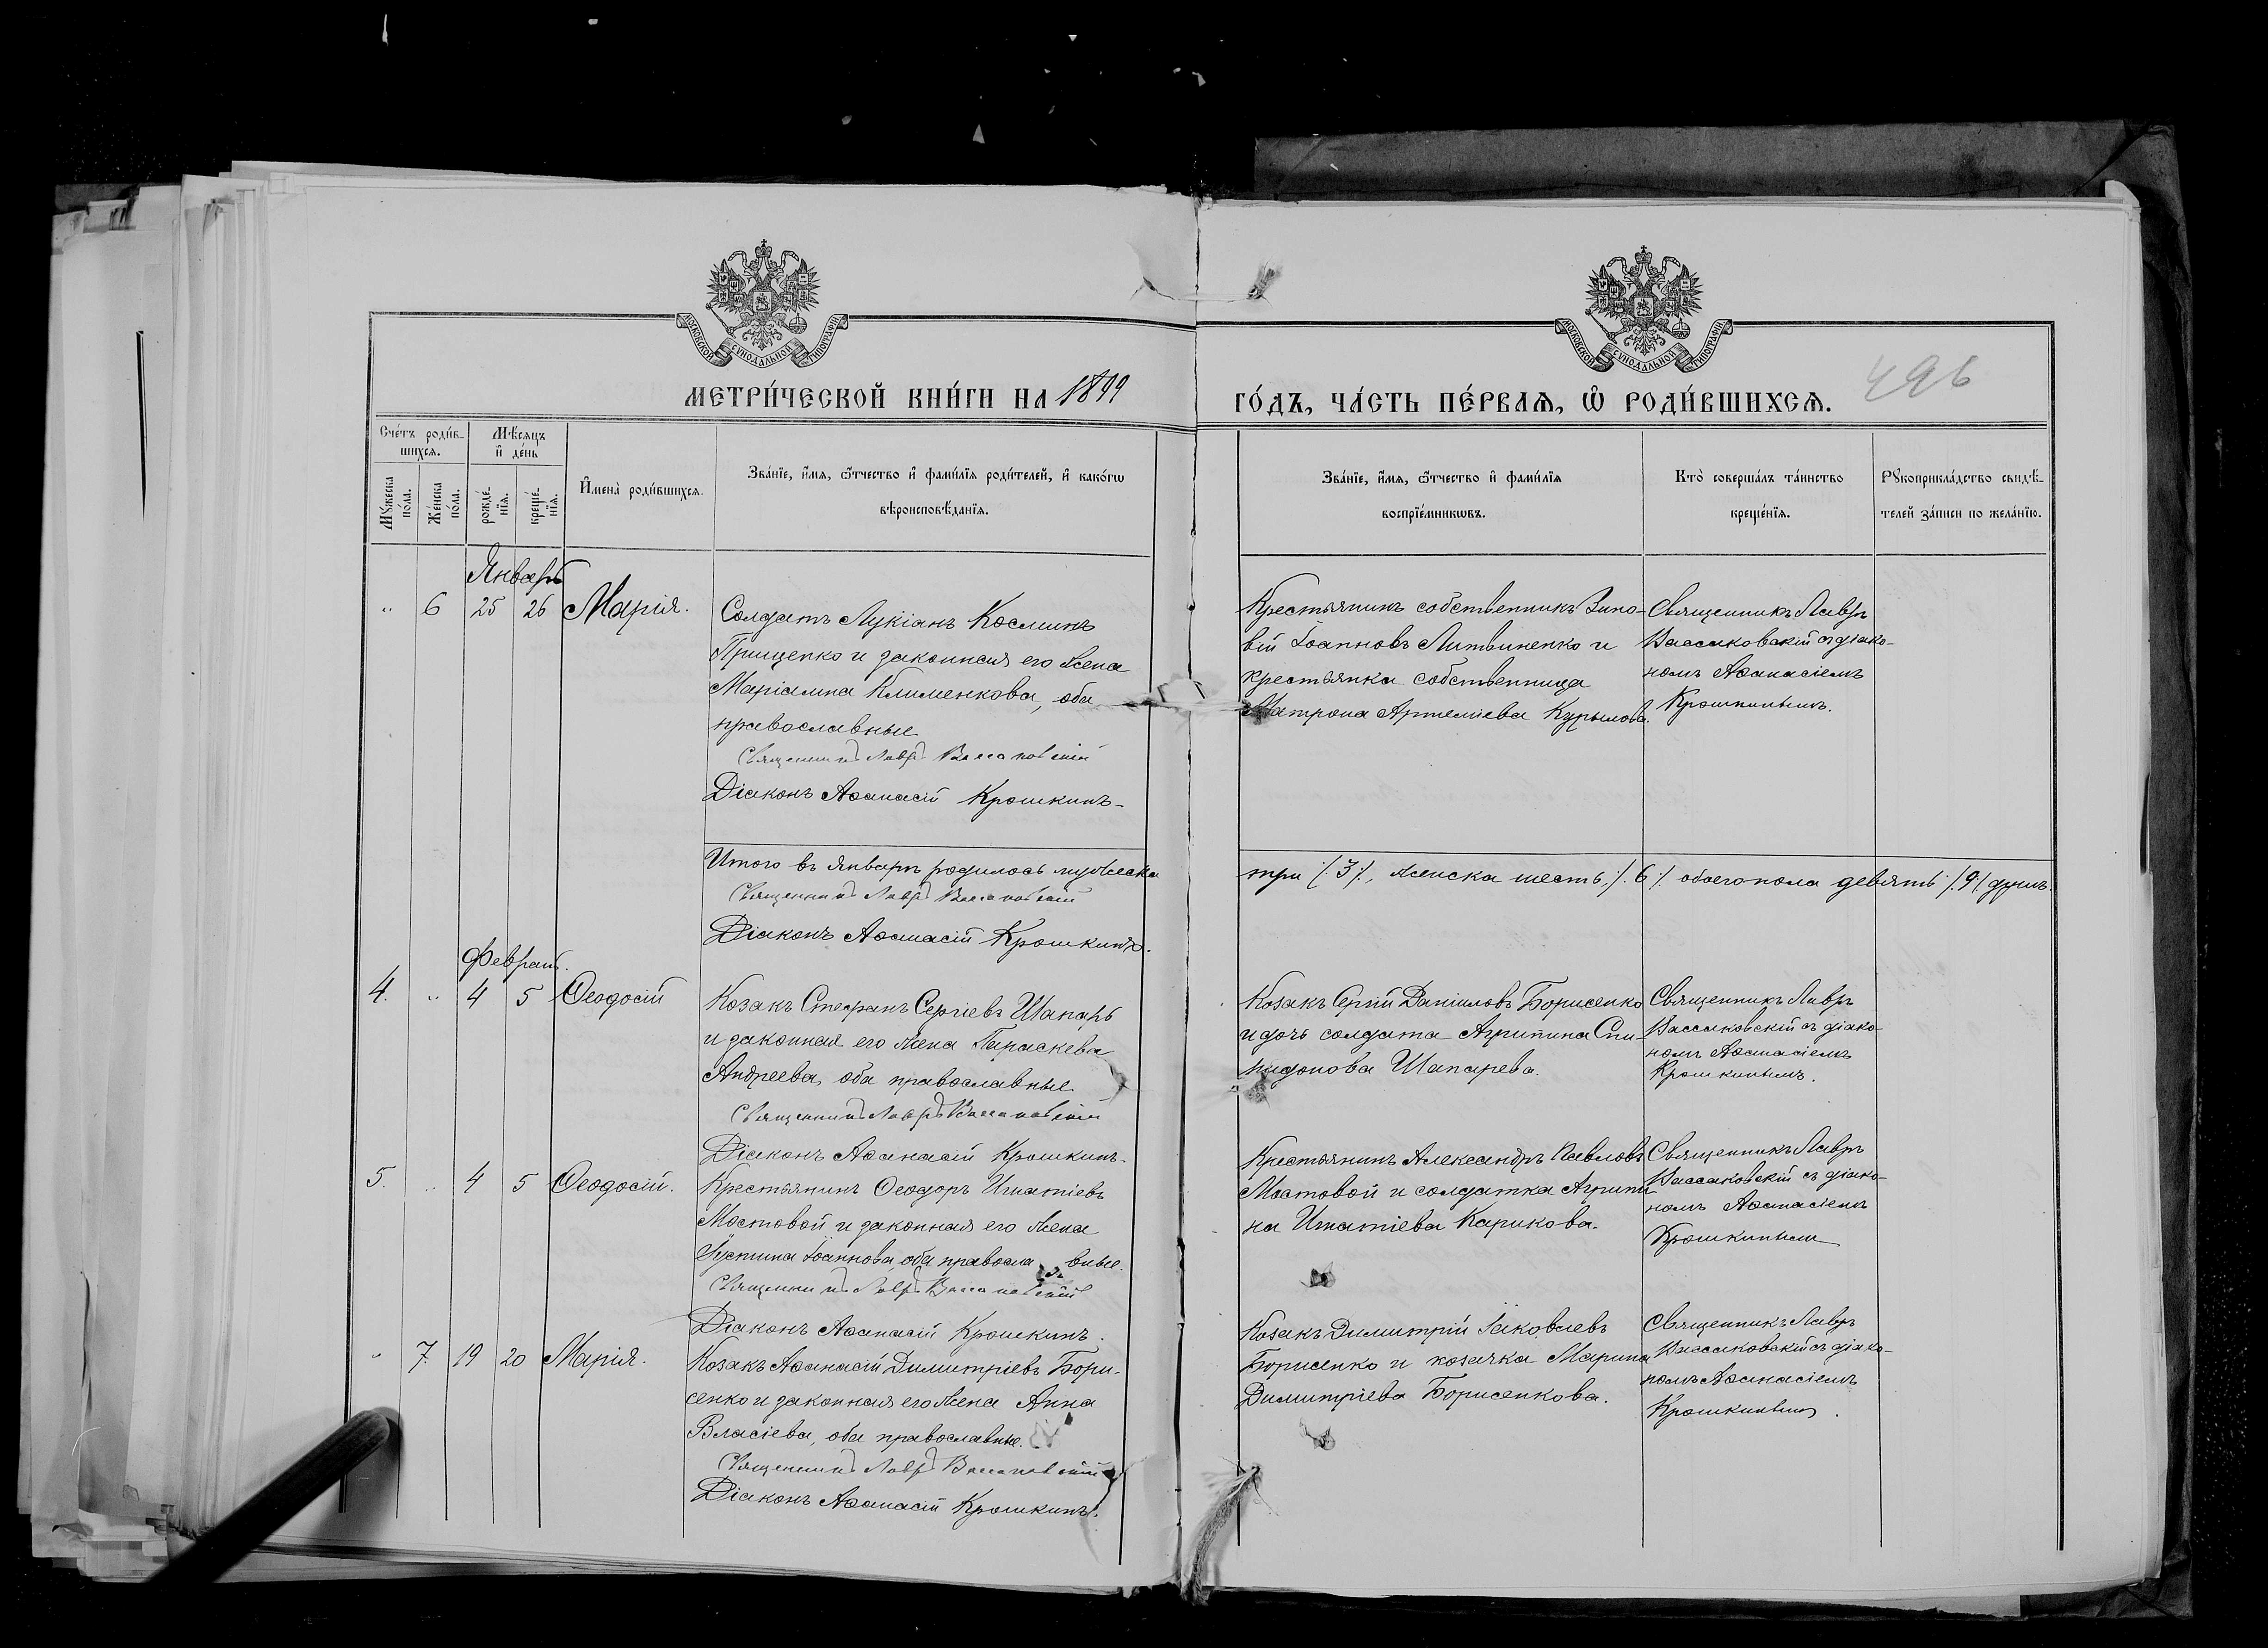 МОСКОВСКОЙ СѴНОДАЛЬНОЙ ТИПОГРАФІИ
МОСКОВСКОЙ СѴНОДАЛЬНОЙ ТИПОГРАФІИ
МЕТРИ́ЧЕСКОЙ КНИ́ГИ НА 1899
ГО́ДЪ, ЧА́СТЬ ПЕ́РВАѦ, Ѡ РОДИ́ВШИХСѦ.
496
Сче́тъ роди́в-
шихсѧ.
Мѣ́сѧцъ
и҆ де́нь
Мꙋ́жеска по́ла.
Же́нска по́ла.
рожде́-нїѧ.
креще́-нїѧ.
И҆мена̀ роди́вшихсѧ.
Зва́нїе, и҆́мѧ, ѻ҆́тчество и҆ фами́лїѧ роди́телей, и҆ како́гѡ
вѣроисповѣ́данїѧ.
Зва́нїе, и҆́мѧ, ѻ҆́тчество и҆ фами́лїѧ
воспрїе́мникѡвъ.
Кто̀ соверша́лъ та́инство
креще́нїѧ.
Рꙋкоприкла́дство свидѣ́-
телей за́писи по жела́нїю.
Январь
" 6 25 26 Марія.
Солдатъ Лукіанъ Косминъ
Прищепко и законная его жена
Маріамна Клименкова, оба
православные
Священникъ Лавръ Вассаковскій
Діаконъ Аѳанасій Крошкинъ.
Крестьянинъ собственникъ Зино-
вій Іоанновъ Литвиненко и
крестьянка собственница
Матрона Артеміева Курылова.
Священникъ Лавръ
Вассаковскій съ діако-
номъ Аѳанасіемъ
Крошкинымъ.
Итого въ Январѣ родилось мужеска
три /.3./, женска шесть, /.6./. обоего пола девять /.9./ душъ.
Священникъ Лавръ Вассаковскій
Діаконъ Аѳанасій Крошкинъ.
Февраль.
4. " 4 5 Ѳеодосій
Козакъ Стефанъ Сергіевъ Шапарь
и законная его жена Параскева
Андреева, оба православные
Священникъ Лавръ Вассаковскій
Діаконъ Аѳанасій Крошкинъ.
Козакъ Сергій Даніиловъ Борисенко
и дочь солдата Агрипина Спи-
ридонова Шапарева.
Священникъ Лавръ
Вассаковскій съ діако-
номъ Аѳанасіемъ
Крошкинымъ.
5. " 4 5 Ѳеодосій.
Крестьянинъ Ѳеодоръ Игнатіевъ
Мостовой и законная его жена
Іустина Іоаннова, оба православные.
Священникъ Лавръ Вассаковскій
Діаконъ Аѳанасій Крошкинъ.
Крестьянинъ Александръ Павловъ
Мостовой и солдатка Агрипи
на Игнатіева Карикова.
Священникъ Лавръ
Вассаковскій съ діако-
номъ Аѳанасіемъ
Крошкинымъ
" 7. 19 20 Марія.
Козакъ Аѳанасій Димитріевъ Бори-
сенко и законная его жена Анна
Власіева, оба православные.
Священникъ Лавръ Вассаковскій
Діаконъ Аѳанасій Крошкинъ.
Козакъ Димитрій Іаковлевъ
Борисенко и козачка Марина
Димитріева Борисенкова.
Священникъ Лавръ
Вассаковскій съ діако-
номъ Аѳанасіемъ
Крошкинымъ.